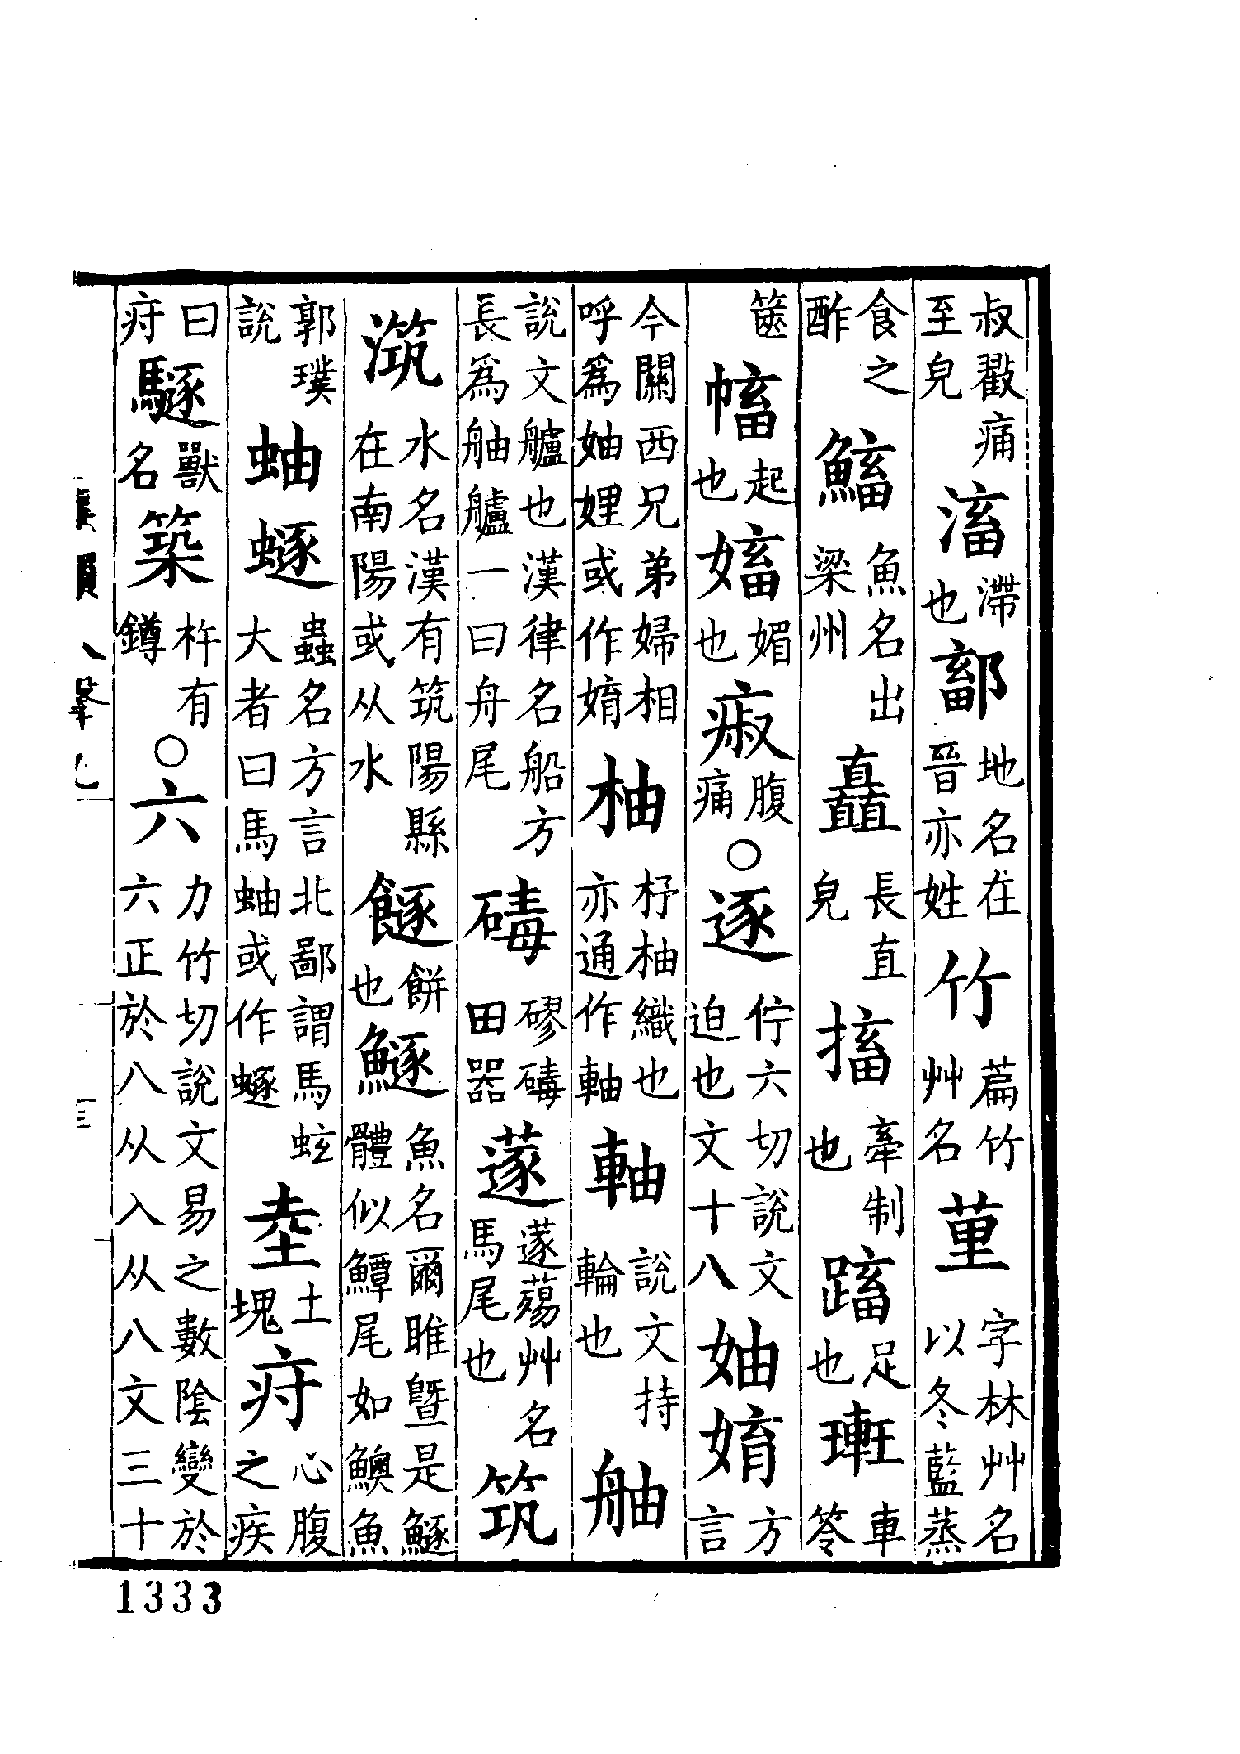 叔㱿痛至皃滀滯也鄐地名在晉亦姓竹萹竹艸名荲字林艸名以冬藍蒸
食之酢魚名出梁州矗長直皃搐牽制也足也車笭
篋起也媚也腹痛○逐佇六切說文迫也文十八妯方言
今關西兄弟婦相呼爲妯娌或作柚杼柚織也亦通作軸軸說文持輪也舳
說文艫也漢律名船方長爲舳艫一曰舟尾碡磟碡田器蓫蓫蕩艸名馬尾也筑
水名漢有筑陽縣在南陽或从水餅也鱁魚名爾雎曁是鱁體似鱏尾如䱐魚
郭璞說蚰蟲名方言北鄙謂馬蚿大者曰馬蚰或作土塊疛心腹之疾
曰疛獸名築杵有鐏○六力竹切說文易之數陰變於六正於八从入从八文三十
1333